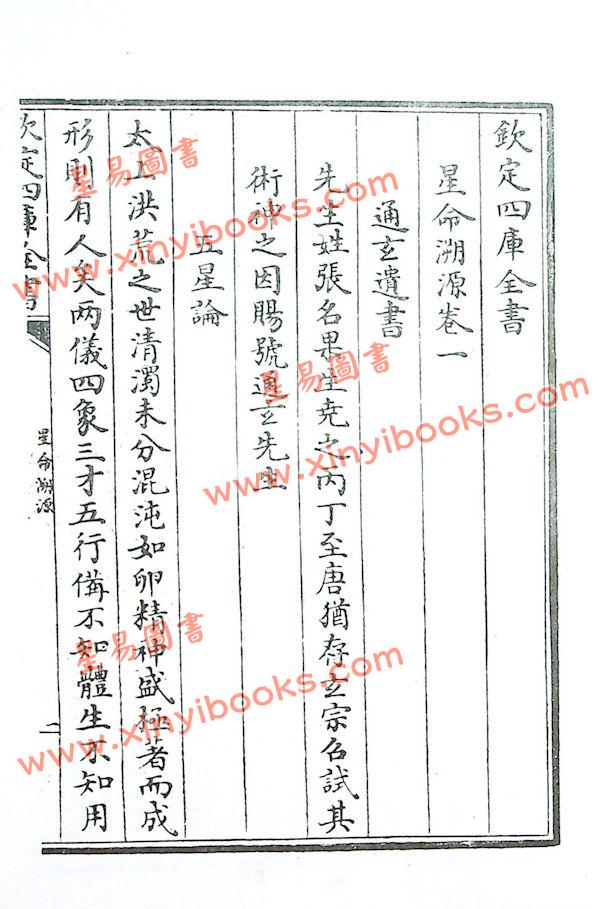 欽定四庫全書
星命溯源卷一
通玄遺書
先生姓張名果生堯之丙丁至唐猶存玄宗名試其
術神之因賜號通玄先生
五星論
太上洪荒之世清濁未分混沌如卵精神盛極著而成
形則有人矣两儀四象三才五行備不知體生不知用
欽定四庫全書
星命溯源
二
星易圖書
www.xinyibooks.com
星易圖書
www.xinyibooks.com
星易圖書
www.xinyibooks.com